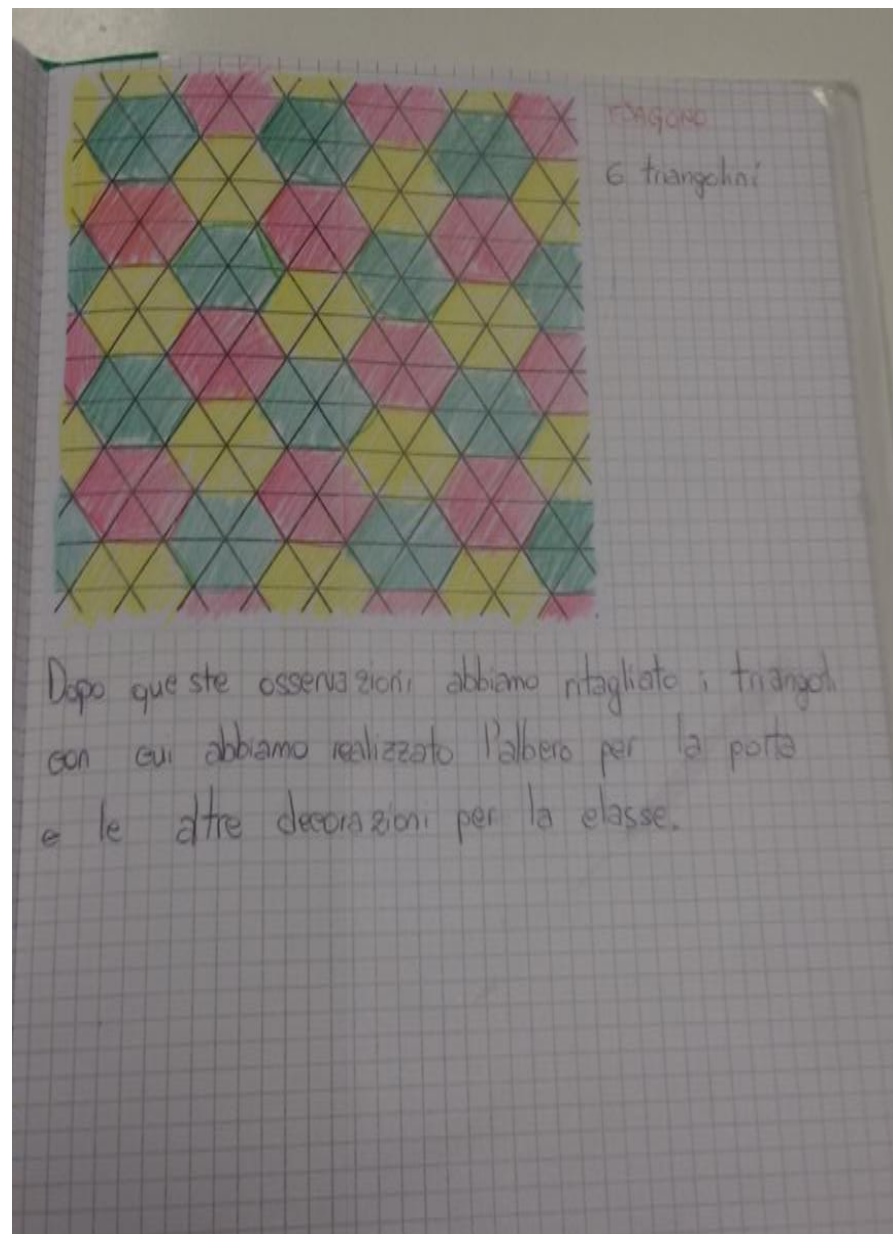 ESAGONO
6 triangolini
Dopo queste osservazioni abbiamo ritagliato i triangoli
con cui abbiamo realizzato l'albero per la porta
e le altre decorazioni per la classe.